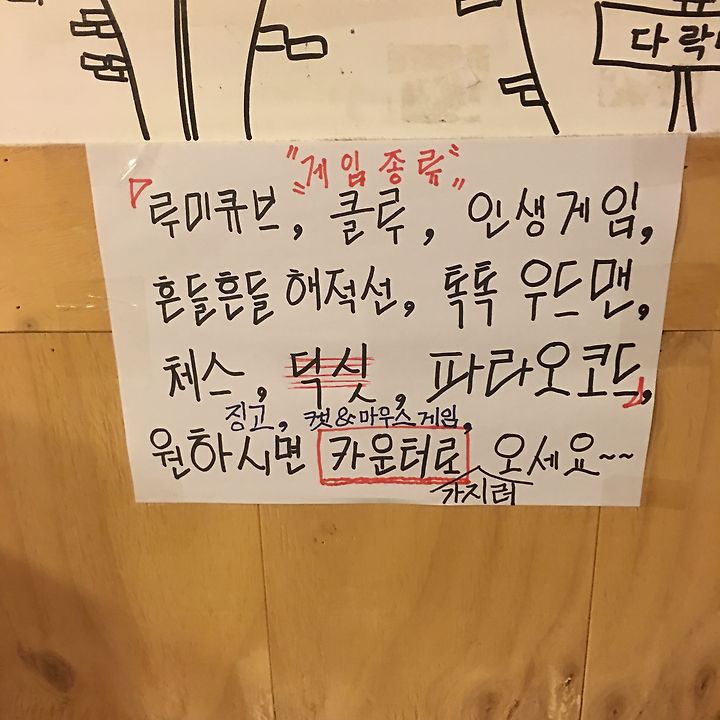 다락
"게임종류"
「루미큐브, 클루, 인생게임,
흔들흔들 해적선, 톡톡 우드맨,
체스, 덕싯, 파라오코드」,
징고, 캣&마우스게임,
원하시면 카운터로 오세요~~
가지러